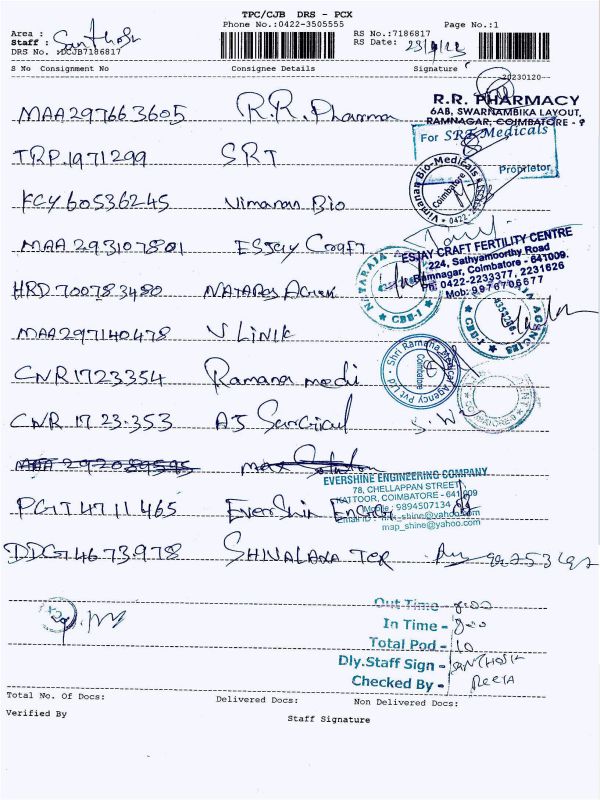 TPC/CJB DRS - PCX
Phone No.:0422-3505555
Page No.:1
Area :
Staff : Santhosh
DRS No. :DCJB7186817
RS No.:7186817
RS Date: 23/9/23
S No Consignment No Consignee Details Signature
20230120
MAA297663605 R.R. Pharma
R.R. PHARMACY
6AB, SWARNAMBIKA LAYOUT,
RAMNAGAR, COIMBATORE - 9
TRP.1971299 SRT
For SRT Medicals
Proprietor
KCY60536245 Vimanan Bio
Vimanan Bio-Medicals
Coimbatore
0422
MAA2931078801 ESJay Craft
ESJAY CRAFT FERTILITY CENTRE
224, Sathyamoorthy Road
Ramnagar, Coimbatore - 641009.
Ph: 0422-2233377, 2231626
Mob: 9976706677
HRD700783480 NATARAJ
NATARAJA AGENCIES
CBE-1
4358286
MAA297140478 V LINK
CNR1723354 Ramana medi
Shri Ramana Medical Agency Pvt Ltd
Coimbatore
CNR 1723353 AJ Surgical
COIMBATORE-9
MAA 292089595
EVERSHINE ENGINEERING COMPANY
78, CHELLAPPAN STREET
KATTOOR, COIMBATORE - 641009
PGT14711465 EverShin
Mobile: 9894507134
map_shine@yahoo.com
DDG14673978 SHIVALAXA TEX
Out Time - 8:00
In Time - 8:00
Total Pod - 10
Dly.Staff Sign - SANTHOSH
Checked By - REETA
Total No. Of Docs: Delivered Docs: Non Delivered Docs:
Verified By Staff Signature